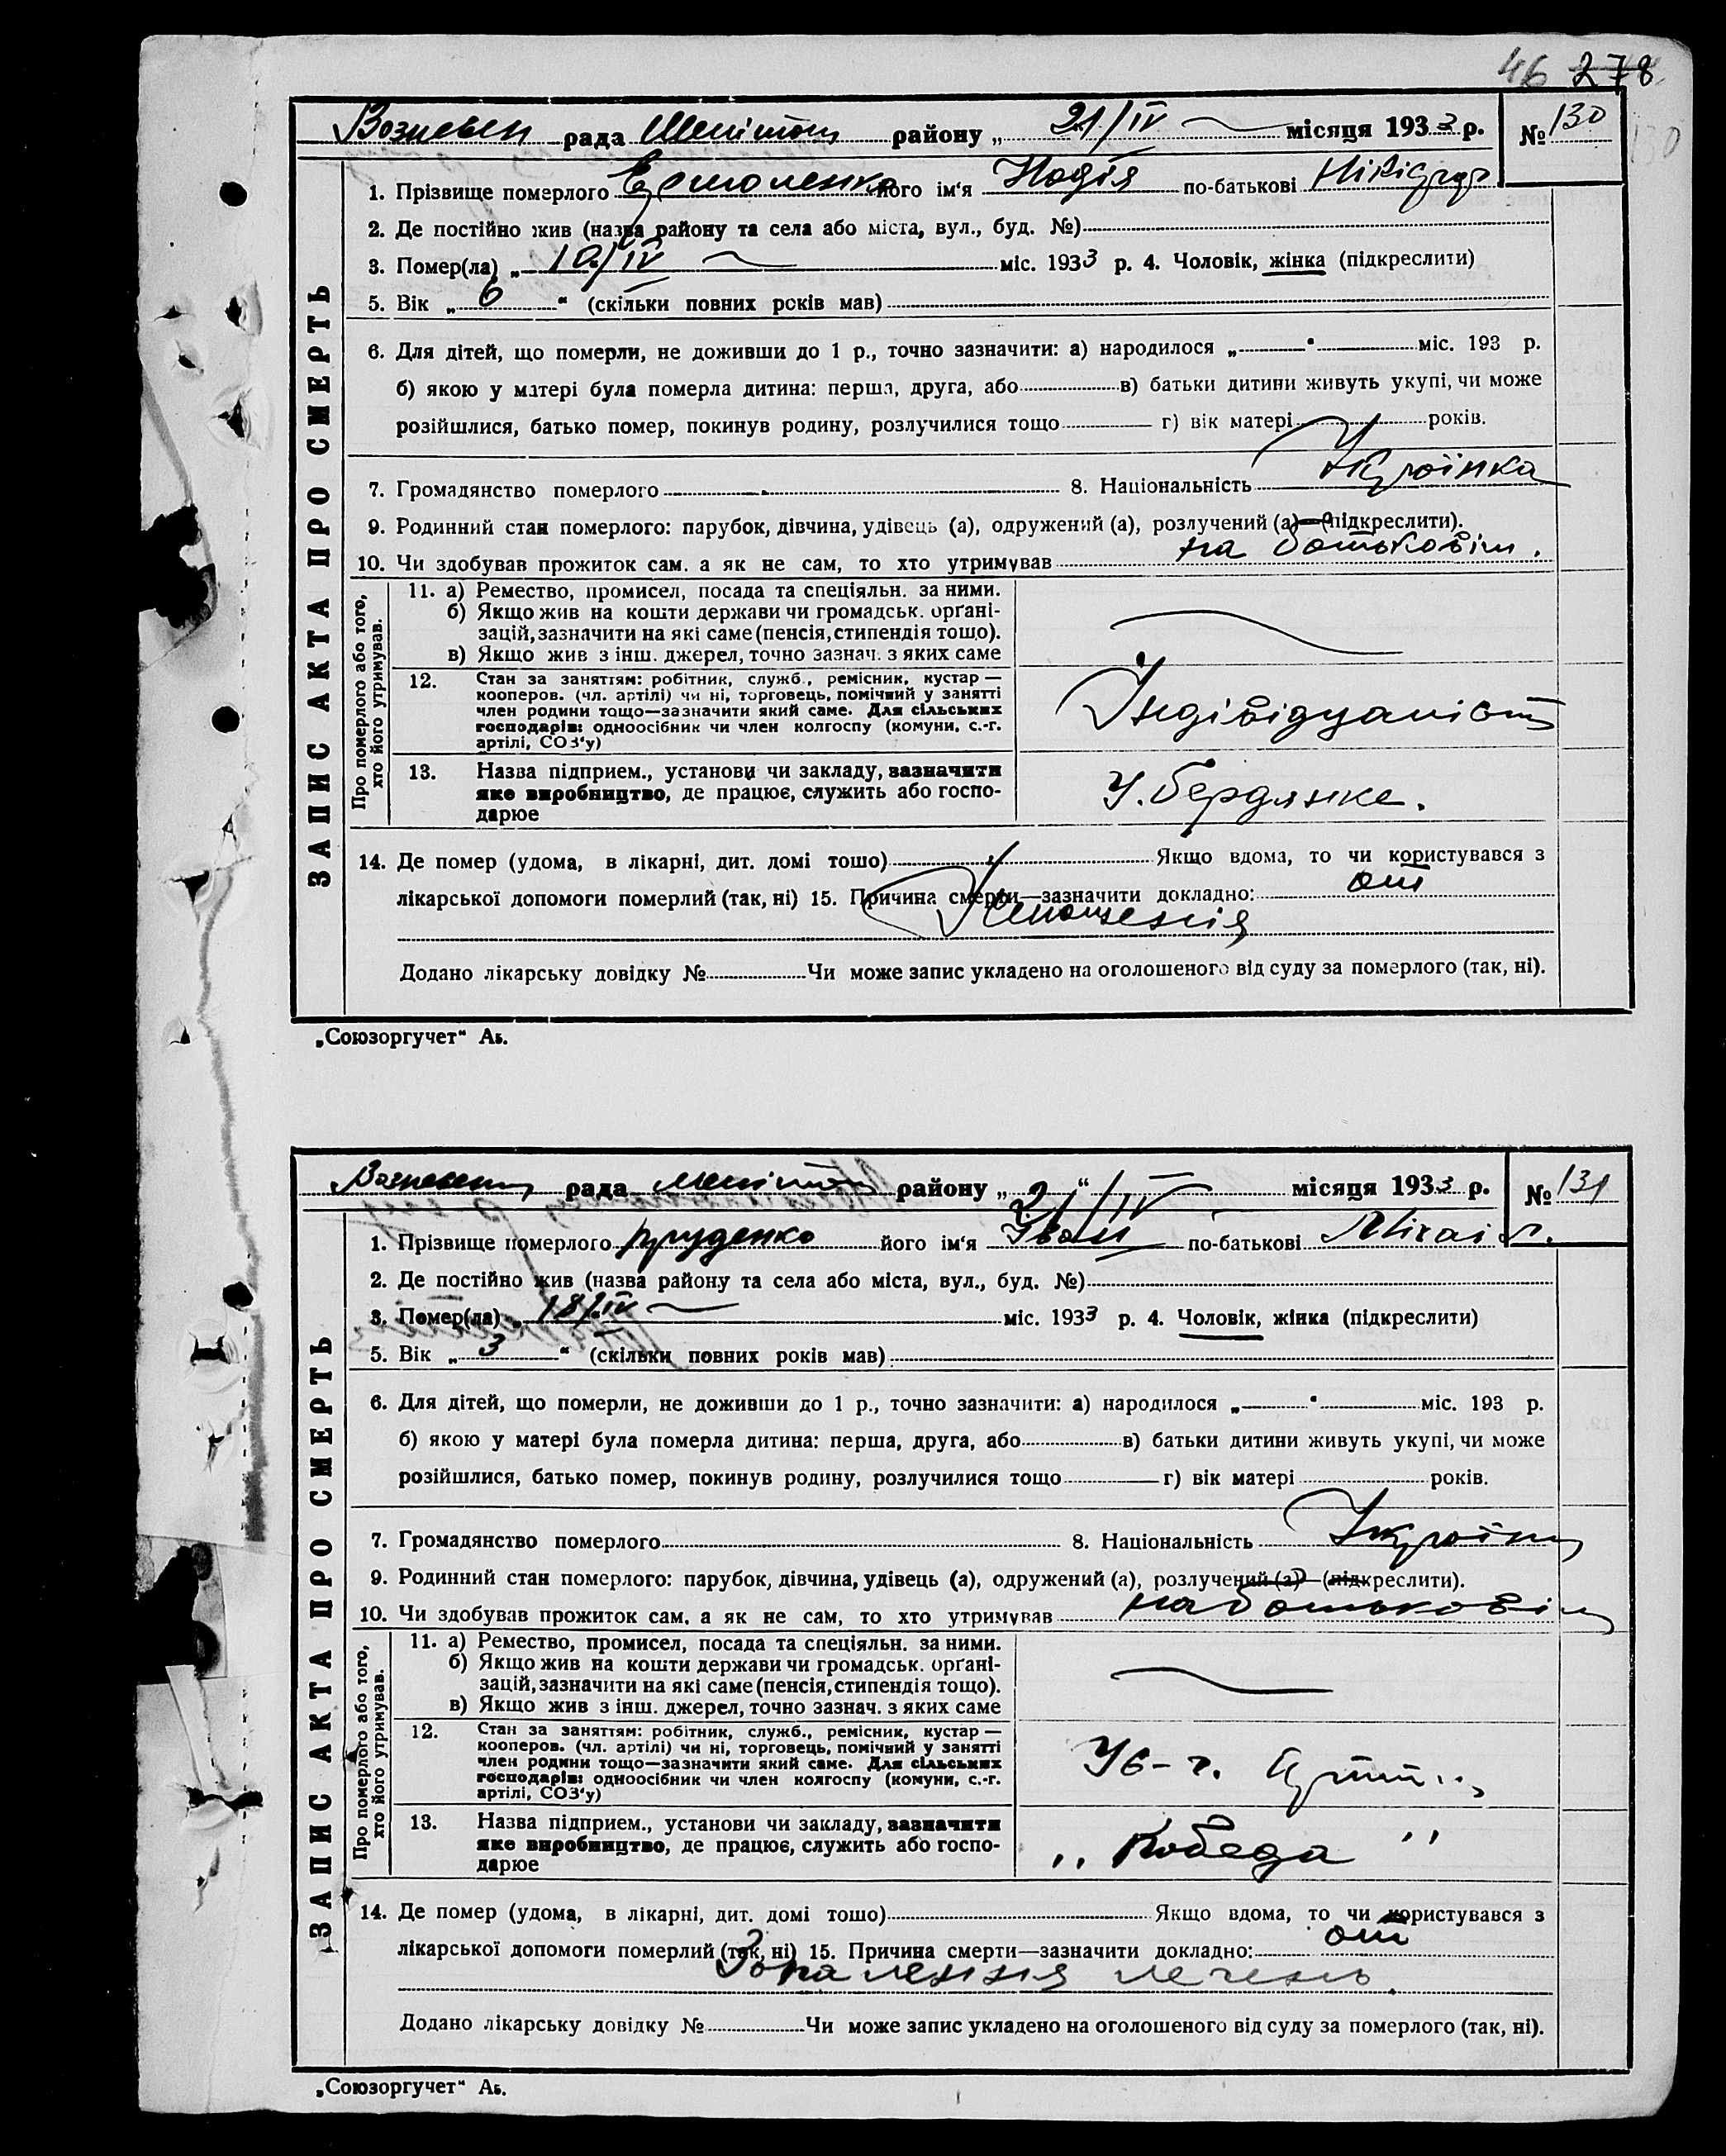 46 278
Вознесен рада Мелітоп району „ 21/IV місяця 1933 р. № 130
130
1. Прізвище померлого Ермоленко його ім‘я Надія по-батькові
2. Де постійно жив (назва району та села або міста, вул., буд. №)
3. Помер(ла) „ 10/IV міс. 1933 р. 4. Чоловік, жінка (підкреслити)
5. Вік „ 6 “ (скільки повних років мав)
6. Для дітей, що померли, не доживши до 1 р., точно зазначити: а) народилося „ “ міс. 193 р.
б) якою у матері була померла дитина: перша, друга, або в) батьки дитини живуть укупі, чи може
розійшлися, батько помер, покинув родину, розлучилися тощо г) вік матері років.
7. Громадянство померлого 8. Національність Украінка
9. Родинний стан померлого: парубок, дівчина, удівець (а), одружений (а), розлучений (а) (підкреслити).
10. Чи здобував прожиток сам, а як не сам, то хто утримував на батьковім.
ЗАПИС АКТА ПРО СМЕРТЬ
Про померлого або того, хто його утримував.
11. а) Ремество, промисел, посада та спеціяльн. за ними.
б) Якщо жив на кошти держави чи громадськ. орґані-
зацій, зазначити на які саме (пенсія, стипендія тощо).
в) Якщо жив з інш. джерел, точно зазнач. з яких саме
12. Стан за заняттям: робітник, служб., ремісник, кустар —
кооперов. (чл. артілі) чи ні, торговець, помічний у занятті
член родини тощо—зазначити який саме. Для сільських
господарів: одноосібник чи член колгоспу (комуни, с.-г.
артілі, СОЗ‘у)
Індівідуаліст
13. Назва підприєм., установи чи закладу, зазначити
яке виробництво, де працює, служить або госпо-
дарює
У. Бердянке.
14. Де помер (удома, в лікарні, дит. домі тошо) Якщо вдома, то чи користувався з
лікарської допомоги померлий (так, ні) 15. Причина смерти—зазначити докладно: от
Істощенія
Додано лікарську довідку № Чи може запис укладено на оголошеного від суду за померлого (так, ні).
„Союзоргучет“ Аь.
Вознесен рада Мелітоп району „ 21 “ /IV місяця 1933 р. № 131
1. Прізвище померлого Груденко його ім‘я Іван по-батькові Міхаіл.
2. Де постійно жив (назва району та села або міста, вул., буд. №)
3. Помер(ла) „ 18/IV міс. 1933 р. 4. Чоловік, жінка (підкреслити)
5. Вік „ 3 “ (скільки повних років мав)
6. Для дітей, що померли, не доживши до 1 р., точно зазначити: а) народилося „ “ міс. 193 р.
б) якою у матері була померла дитина: перша, друга, або в) батьки дитини живуть укупі, чи може
розійшлися, батько помер, покинув родину, розлучилися тощо г) вік матері років.
7. Громадянство померлого 8. Національність Україн
9. Родинний стан померлого: парубок, дівчина, удівець (а), одружений (а), розлучений (а) (підкреслити).
10. Чи здобував прожиток сам, а як не сам, то хто утримував на батьковім
ЗАПИС АКТА ПРО СМЕРТЬ
Про померлого або того, хто його утримував.
11. а) Ремество, промисел, посада та спеціяльн. за ними.
б) Якщо жив на кошти держави чи громадськ. орґані-
зацій, зазначити на які саме (пенсія, стипендія тощо).
в) Якщо жив з інш. джерел, точно зазнач. з яких саме
12. Стан за заняттям: робітник, служб., ремісник, кустар —
кооперов. (чл. артілі) чи ні, торговець, помічний у занятті
член родини тощо—зазначити який саме. Для сільських
господарів: одноосібник чи член колгоспу (комуни, с.-г.
артілі, СОЗ‘у)
13. Назва підприєм., установи чи закладу, зазначити
яке виробництво, де працює, служить або госпо-
дарює
„ Победа "
14. Де помер (удома, в лікарні, дит. домі тошо) Якщо вдома, то чи користувався з
лікарської допомоги померлий (так, ні) 15. Причина смерти—зазначити докладно: от
Запалення легень.
Додано лікарську довідку № Чи може запис укладено на оголошеного від суду за померлого (так, ні).
„Союзоргучет“ Аь.